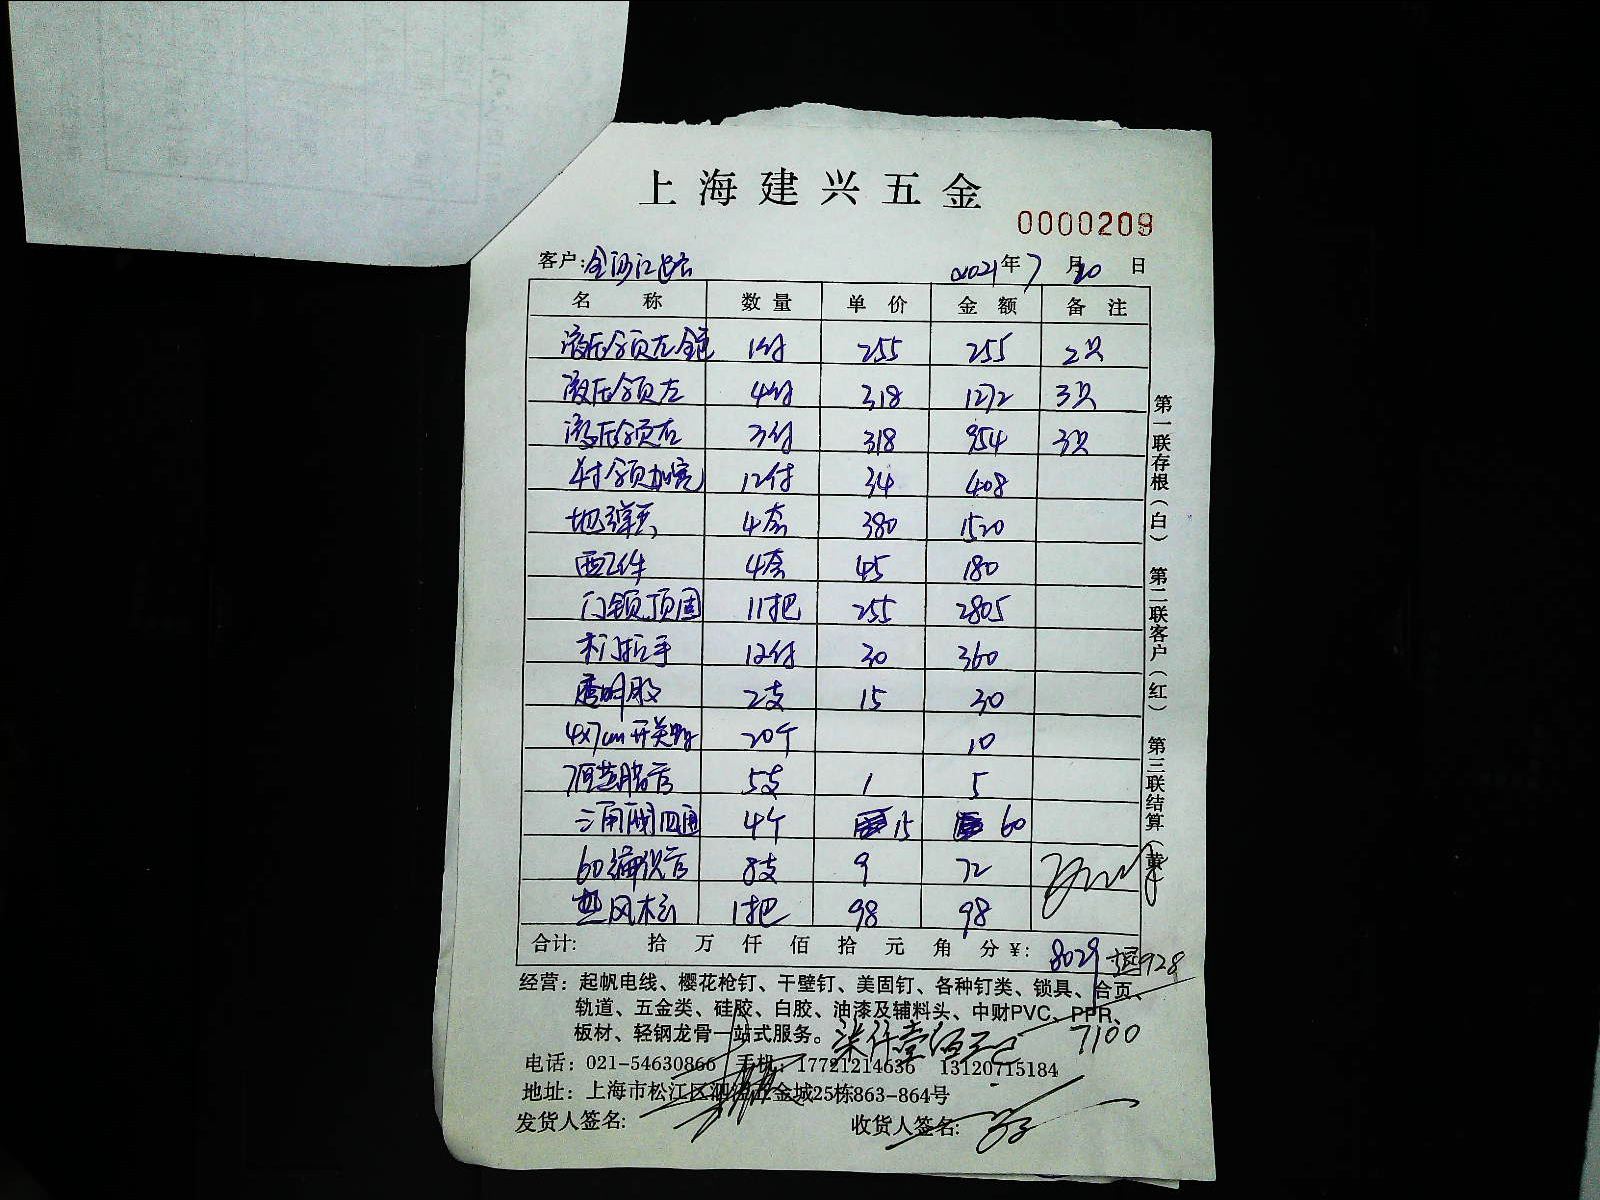 上海建兴五金
0000209
客户: 2021年7月20日
名称 数量 单价 金额 备注
255 255 2只
318 1272 3只
3付 318 954 3只
12付 34 408
4套 380 1520
配件 4套 45 180
门锁顶固 11把 255 2805
木门拉手 12付 30 360
透明胶 2支 15 30
4x7cm开关 20个 10
5支 1 5
三角阀四通 4个 15 60
60 8支 9 72
热风枪 1把 98 98
合计: 拾 万 仟 佰 拾 元 角 分 ¥: 8029 928
经营：起帆电线、樱花枪钉、干壁钉、美固钉、各种钉类、锁具、合页、
轨道、五金类、硅胶、白胶、油漆及辅料头、中财PVC、PPR、
板材、轻钢龙骨一站式服务。
7100
电话：021-54630866 手机：17721214636 13120715184
地址：上海市松江区泗泾五金城25栋863-864号
发货人签名: 收货人签名:
第一联存根（白） 第二联客户（红） 第三联结算（黄）